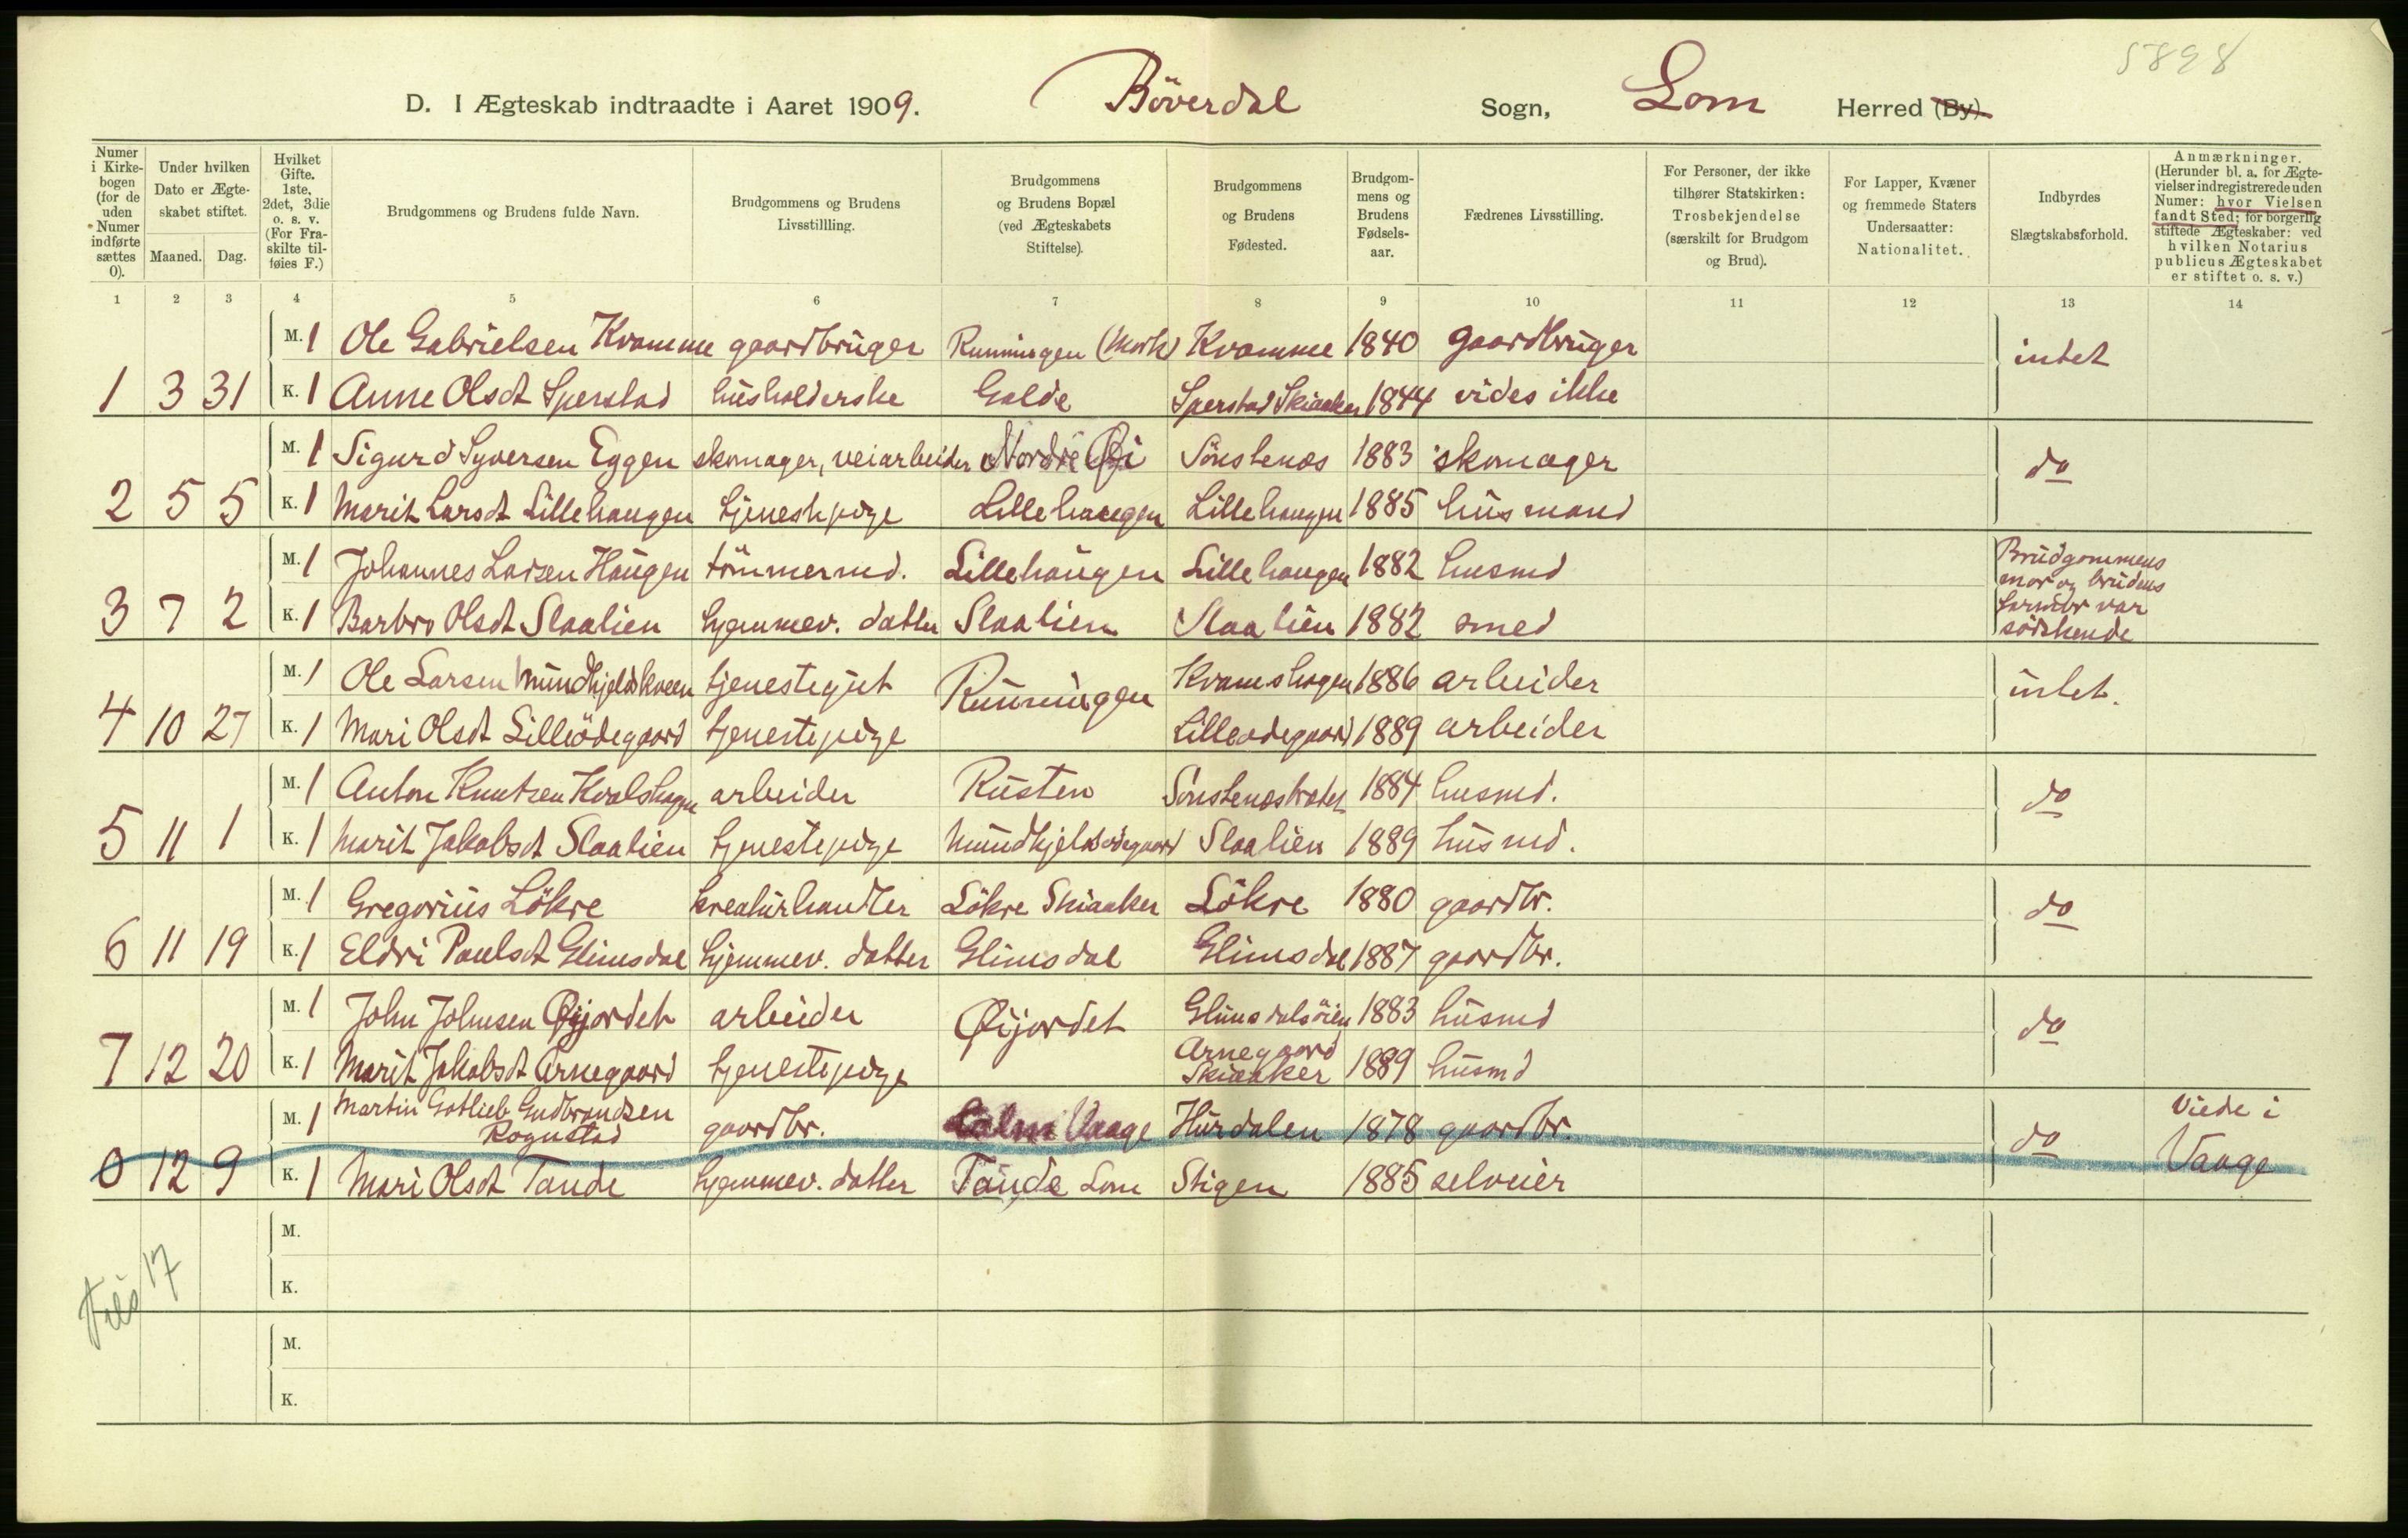 5898
D. I Ægteskab indtraadte i Aaret 1909. Böverdal Sogn, Lom Herred (By).
Numer i Kirkebogen (for de uden Numer indførte sættes 0).
Under hvilken Dato er Ægteskabet stiftet.
Maaned. Dag.
Hvilket Gifte. 1ste, 2det, 3die o. s. v. (For Fraskilte tilføies F.)
Brudgommens og Brudens fulde Navn.
Brudgommens og Brudens Livsstillling.
Brudgommens og Brudens Bopæl (ved Ægteskabets Stiftelse).
Brudgommens og Brudens Fødested.
Brudgommens og Brudens Fødselsaar.
Fædrenes Livsstilling.
For Personer, der ikke tilhører Statskirken: Trosbekjendelse (særskilt for Brudgom og Brud).
For Lapper, Kvæner og fremmede Staters Undersaatter: Nationalitet.
Indbyrdes Slægtskabsforhold.
Anmærkninger. (Herunder bl. a. for Ægtevielser indregistrerede uden Numer: hvor Vielsen fandt Sted; for borgerlig stiftede Ægteskaber: ved hvilken Notarius publicus Ægteskabet er stiftet o. s. v.)
1 2 3 4 5 6 7 8 9 10 11 12 13 14
M. 1 Ole Gabrielsen Kvamme gaardbruger Runningen (Mork) Kvamme 1840 gaardbruger intet
1 3 31 K. 1 Anne Olsdt Sperstad husholderske Galde Sperstad Skiaaker 1844 vides ikke
M. 1 Sigurd Syversen Eggen skomager, veiarbeider Nordre Øi Sönstenæs 1883 skomager do
2 5 5 K. 1 Marit Larsdt Lillehaugen tjenestepige Lillehaugen Lillehaugen 1885 husmand
M. 1 Johannes Larsen Haugen tömmermd. Lillehaugen Lillehaugen 1882 husmd Brudgommens mor og brudens farmor var södskende
3 7 2 K. 1 Barbro Olsdt Slaalien hjemmev. datter Slaalien Slaalien 1882 smed
M. 1 Ole Larsen Mundhjeldskveen tjenestegut Runningen Kvamshagen 1886 arbeider intet.
4 10 27 K. 1 Mari Olsdt Lilleödegaard tjenestepige Lilleodegaard 1889 arbeider
M. 1 Anton Knutsen Kvalshagen arbeider Rusten 1884 husmd. do
5 11 1 K. 1 Marit Jakobsdt Slaalien tjenestepige Mundhjeldsödegaard Slaalien 1889 husmd.
M. 1 Gregorius Lökre kreaturhandler Lökre Skiaaker Lökre 1880 gaardbr. do
6 11 19 K. 1 Eldri Paulsdt Glimsdal hjemmev. datter Glimsdal Glimsdal 1887 gaardbr.
M. 1 John Johnsen Øijordet arbeider Øijordet Glimsdalsöien 1883 husmd do
7 12 20 K. 1 Marit Jakobsdt Arnegaard tjenestepige Arnegaard Skiaaker 1889 husmd
M. 1 Martin Gotlieb Gudbrandsen Rognstad gaardbr. Lalm Vaage Hurdalen 1878 gaardbr. do Viede i Vaage
0 12 9 K. 1 Mari Olsdt Tande hjemmev. datter Tande Lom Stigen 1885 selveier
M.
K.
17
M.
K.